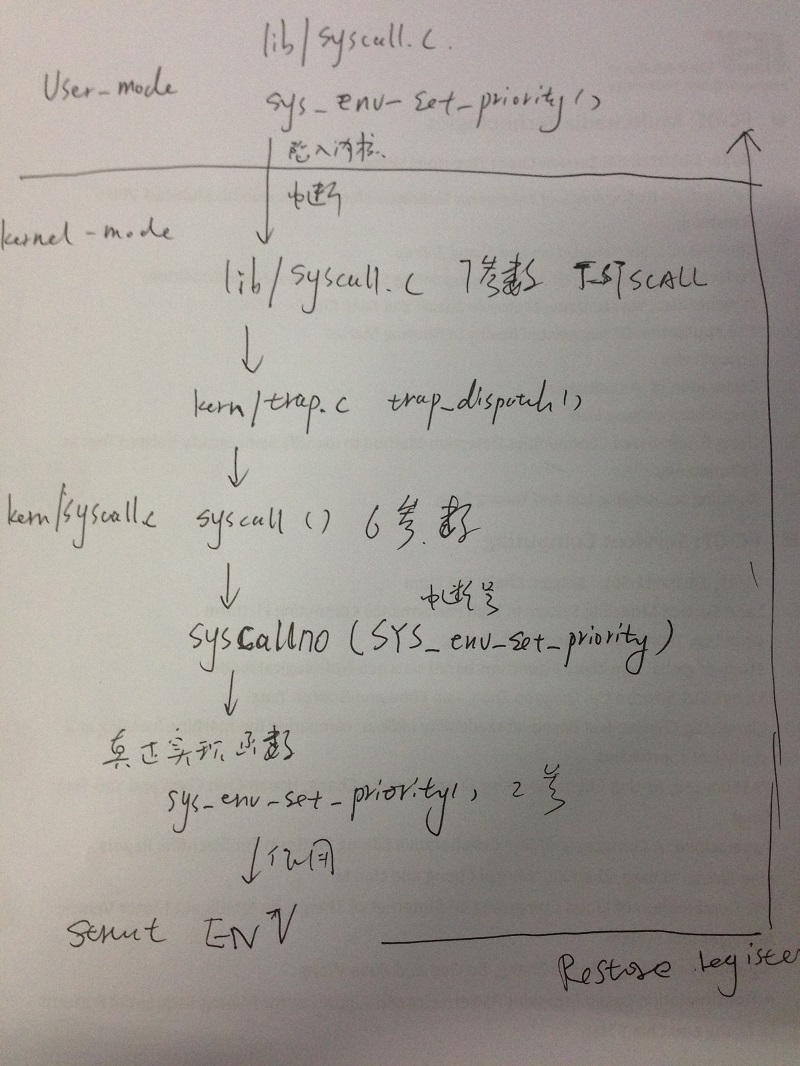 lib/syscall.c.
User-mode
sys_env-set_priority()
陷入内核.
中断
kernel-mode
lib/syscall.c 7参数 T_SYSCALL
kern/trap.c trap_dispatch()
kern/syscall.c syscall() 6参数
中断号
syscallno (SYS_env-set_priority)
真正实现函数
sys_env-set_priority(), 2参
struct ENV
Restore registe